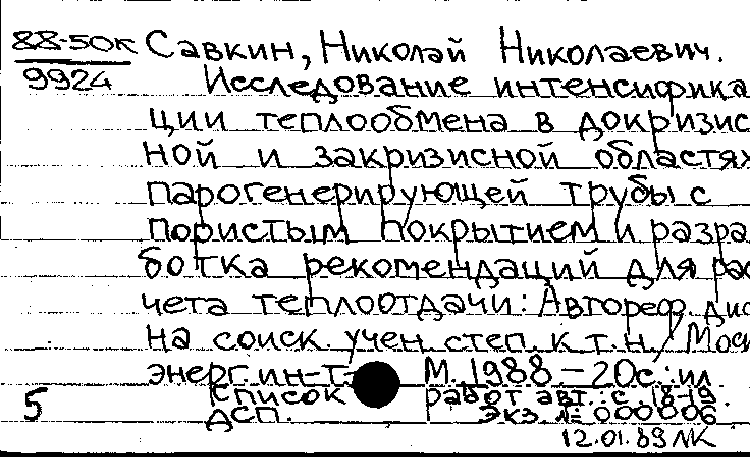 88-50к Савкин, Николай Николаевич.
9924 Исследование интенсифика
ции теплообмена в докризис
ной и закризисной областях
парогенерирующей трубы с
пористым покрытием и разра
ботка рекомендаций для рас
чета теплоотдачи: Автореф. дис
на соиск. учен. степ. к.т.н./Моск
энерг. ин-т- М. 1988 – 20с.: ил
5 Список работ авт.: с. 18-19.
ДСП. Экз. № 000006
12.01.89